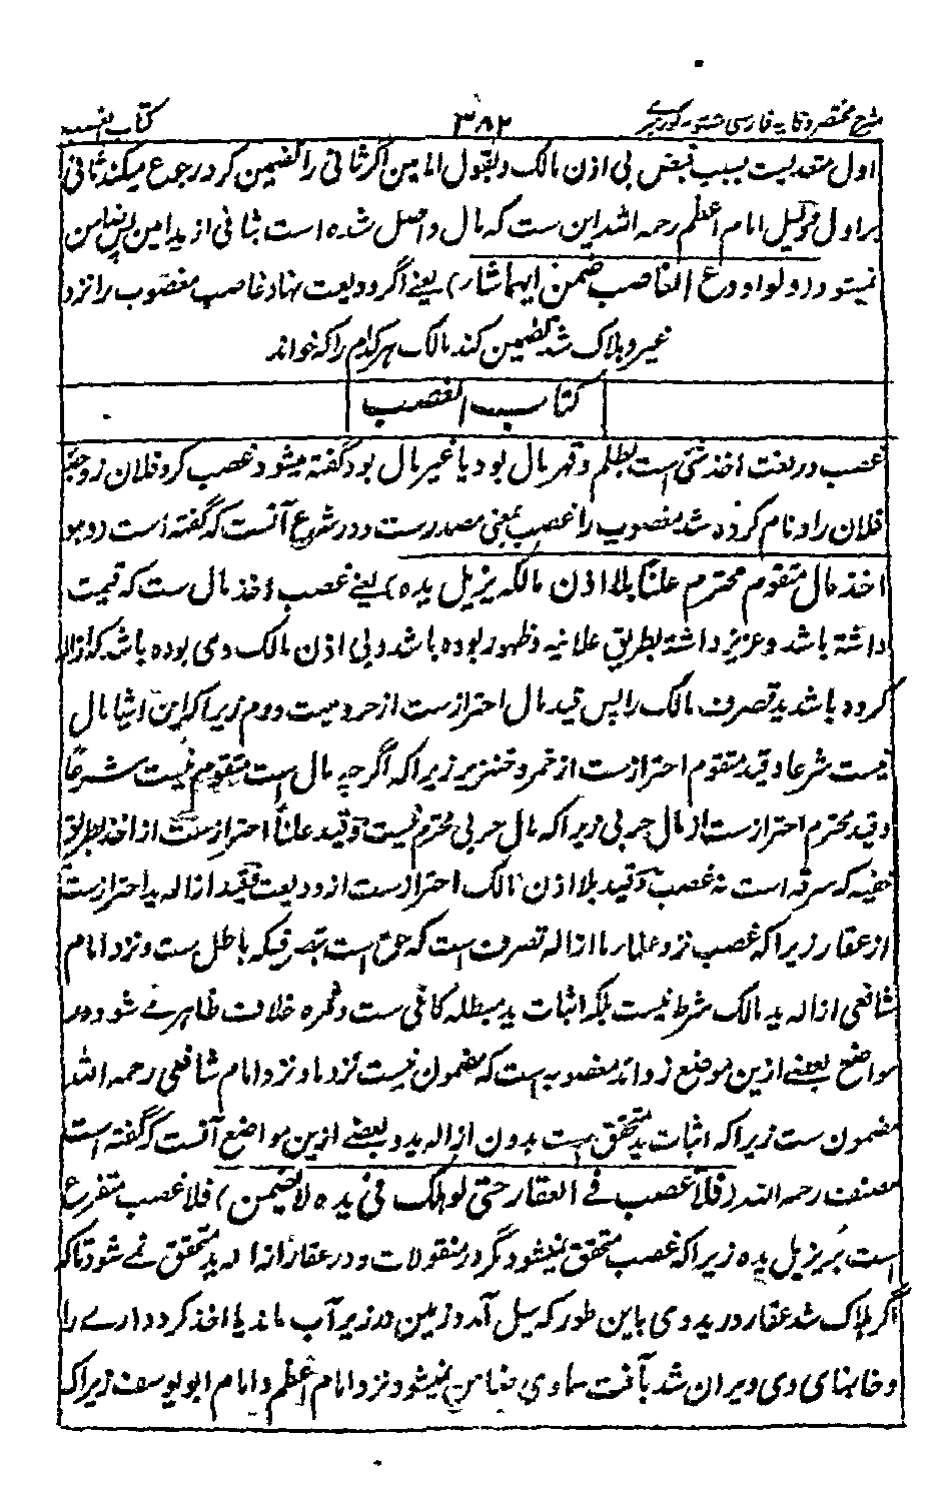 شرح مختصر وقایہ فارسی
۳۸۲
کتاب الغصب
اول متعدیست بسبب قبض بی اذن مالک وبقول امامین اگر ثانی را تضمین کرد رجوع میکند ثانی
براول ودلیل امام اعظم رحمہ اللہ این ست کہ مال واصل شدہ است بثانی از ید امین پس ضامن
نمیشود (ولو اودع الغاصب ضمن ایهما شاء) یعنے اگر ودیعت نهاد غاصب مغصوب را نزد
غیر وہلاک شد تضمین کند مالک ہر کدام را کہ خواند
کتاب الغصب
غصب در لغت اخذ شی است بظلم وقهر مال بود یا غیر مال بود گفته میشود غصب کرد فلان زوجۂ
فلان را ونام کردہ شد مغصوب را غصب بمعنی مصدرست ودر شرع آنست کہ گفته است (هو
اخذ مال متقوم محترم علنا بلا اذن مالکہ یزیل یدہ) یعنے غصب اخذ مال ست کہ قیمت
داشتہ باشد وعزیز داشتہ بطریق علانیہ وظهور بودہ باشد وبی اذن مالک وی بودہ باشد کہ ازالہ
کردہ باشد ید تصرف مالک را پس قید مال احترازست از حر ومیت ودم زیراکہ این اشیا مال
نیست شرعا وقید متقوم احترازست از خمر وخنزیر زیراکہ اگرچہ مال است متقوم نیست شرعا
وقید محترم احترازست از مال حربی زیراکہ مال حربی محترم نیست وقید علناً احترازست از اخذ بطریق
خفیہ کہ سرقہ است نہ غصب وقید بلا اذن مالک احترازست از ودیعت وقید ازالہ ید احترازست
از عقار زیراکہ غصب نزد علماء ما ازالہ تصرف است کہ حق است بتصرفیکہ باطل ست ونزد امام
شافعی ازالہ ید مالک شرط نیست بلکہ اثبات ید مبطلہ کافی ست وثمرہ خلاف ظاہرے شود در
مواضع بعضے ازین موضع زوائد مغصوبہ است کہ مضمون نیست نزد ما ونزد امام شافعی رحمہ اللہ
مضمون ست زیراکہ اثبات ید متحقق است بدون ازالہ ید وبعضے ازین مواضع آنست کہ گفته است
مصنف رحمہ اللہ (فلا غصب فے العقار حتی لو هلک فی یدہ لا یضمن) فلا غصب متفرع
است بر یزیل یدہ زیراکہ غصب متحقق نمیشود مگر در منقولات ودر عقار ازالہ ید متحقق نمے شود تا کہ
اگر ہلاک شد عقار در ید وی باین طور کہ سیل آمد وزمین در زیر آب ماند یا اخذ کرد دارے را
وخانہای وی ویران شد بآفت سماوی ضامن نمیشود نزد امام اعظم وامام ابو یوسف زیراکہ